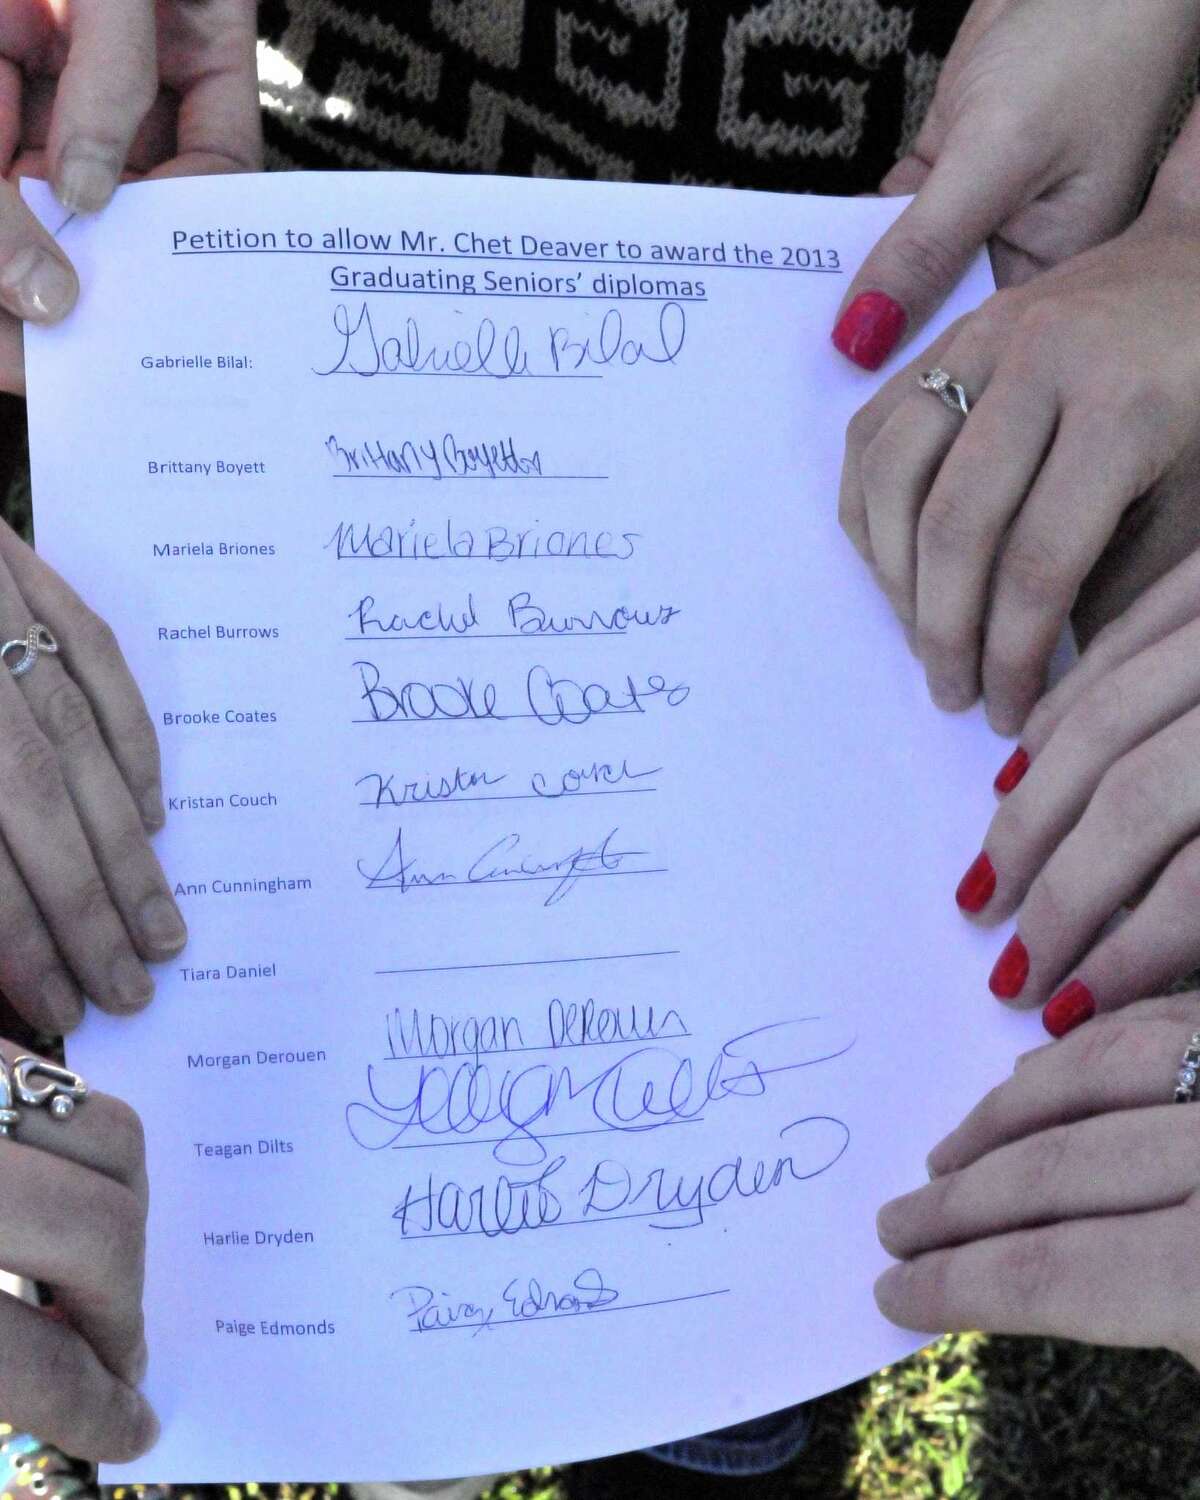 Petition to allow Mr. Chet Deaver to award the 2013
Graduating Seniors' diplomas
Gabrielle Bilal: Gabrielle Bilal
Brittany Boyett Brittany Boyett
Mariela Briones Mariela Briones
Rachel Burrows Rachel Burrows
Brooke Coates Brooke Coates
Kristan Couch Kristan Couch
Ann Cunningham Ann Cunningham
Tiara Daniel
Morgan Derouen Morgan Derouen
Teagan Dilts
Harlie Dryden Harlie Dryden
Paige Edmonds Paige Edmonds